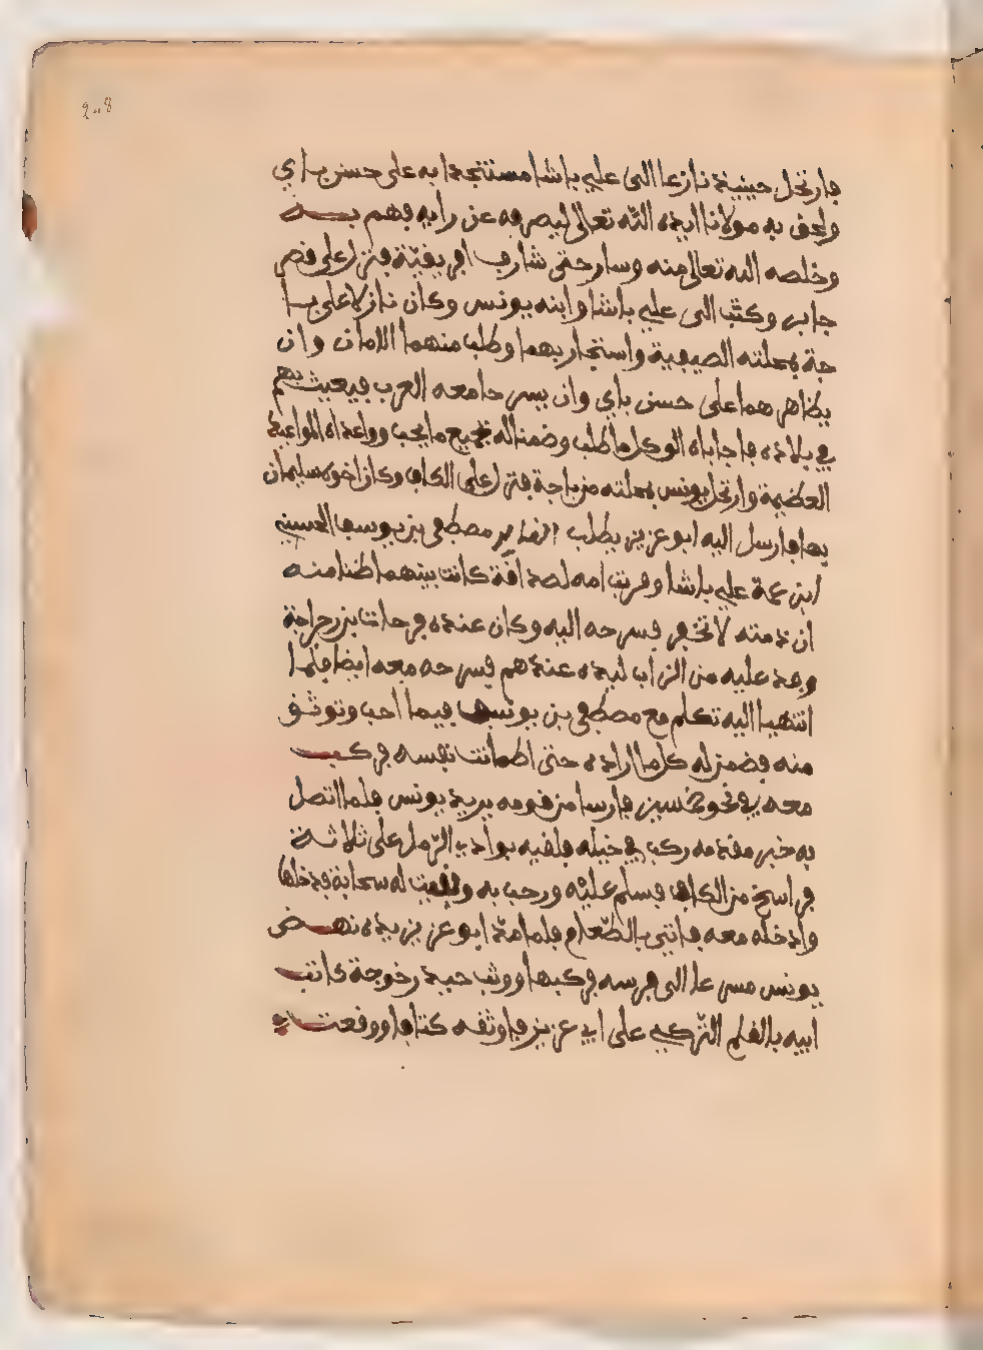 208
فارتحل حينيذ نازعا الى علي باشا مستنجدا به على حسن باي
ولحق به مولانا ايده الله تعالى ليصرفه عن رايه فهم به
وخلصه الله تعالى منه وسار حتى شارف افريقيّة فنزل على قصر
جابر وكتب الى علي باشا وابنه يونس وكان نازلا على با
جة بمحلته الصيفية واستجار بهما وطلب منهما الامان وان
يظاهرهما على حسن باي وان يسرحا معه العرب فيعيث بهم
في بلاده فاجاباه الى كل ما طلب وضمنا له جميع ما يحب وواعداه المواعيد
العظيمة وارتحل يونس بمحلته من باجة فنزل على الكاف وكان اخوه سليمان
بها فارسل اليه ابو عزيز يطلب مصطفى بن يوسف الحسيني
ابن عمة علي باشا وقريب امه لصداقة كانت بينهما ظنا منه
ان ذمته لا تخفر فسرحه اليه وكان عنده فرحات بن رجراجة
وفد عليه من الزاب ليده عندهم فسرحه معه ايضا فلما
انتهيا اليه تكلم مع مصطفى بن يوسف فيما احب وتوثق
منه فضمن له كل ما اراده حتى اطمانت نفسه فركب
معه في نحو خمسين فارسا من قومه يريد يونس فلما اتصل
به خبر مقدمه ركب في خيله فلقيه بوادي الرّمل على ثلاثة
فراسخ من الكاف فسلم عليه ورحب به ووقفت له سحابة فدخلها
وادخله معه فاتي بالطّعام فلما مدّ ابو عزيز يده نهض
يونس مسرعا الى فرسه فركبها ووثب حيدر خوجة كاتب
ابيه بالقلم التّركي على ابي عزيز فاوثقه كتافا ووقعت